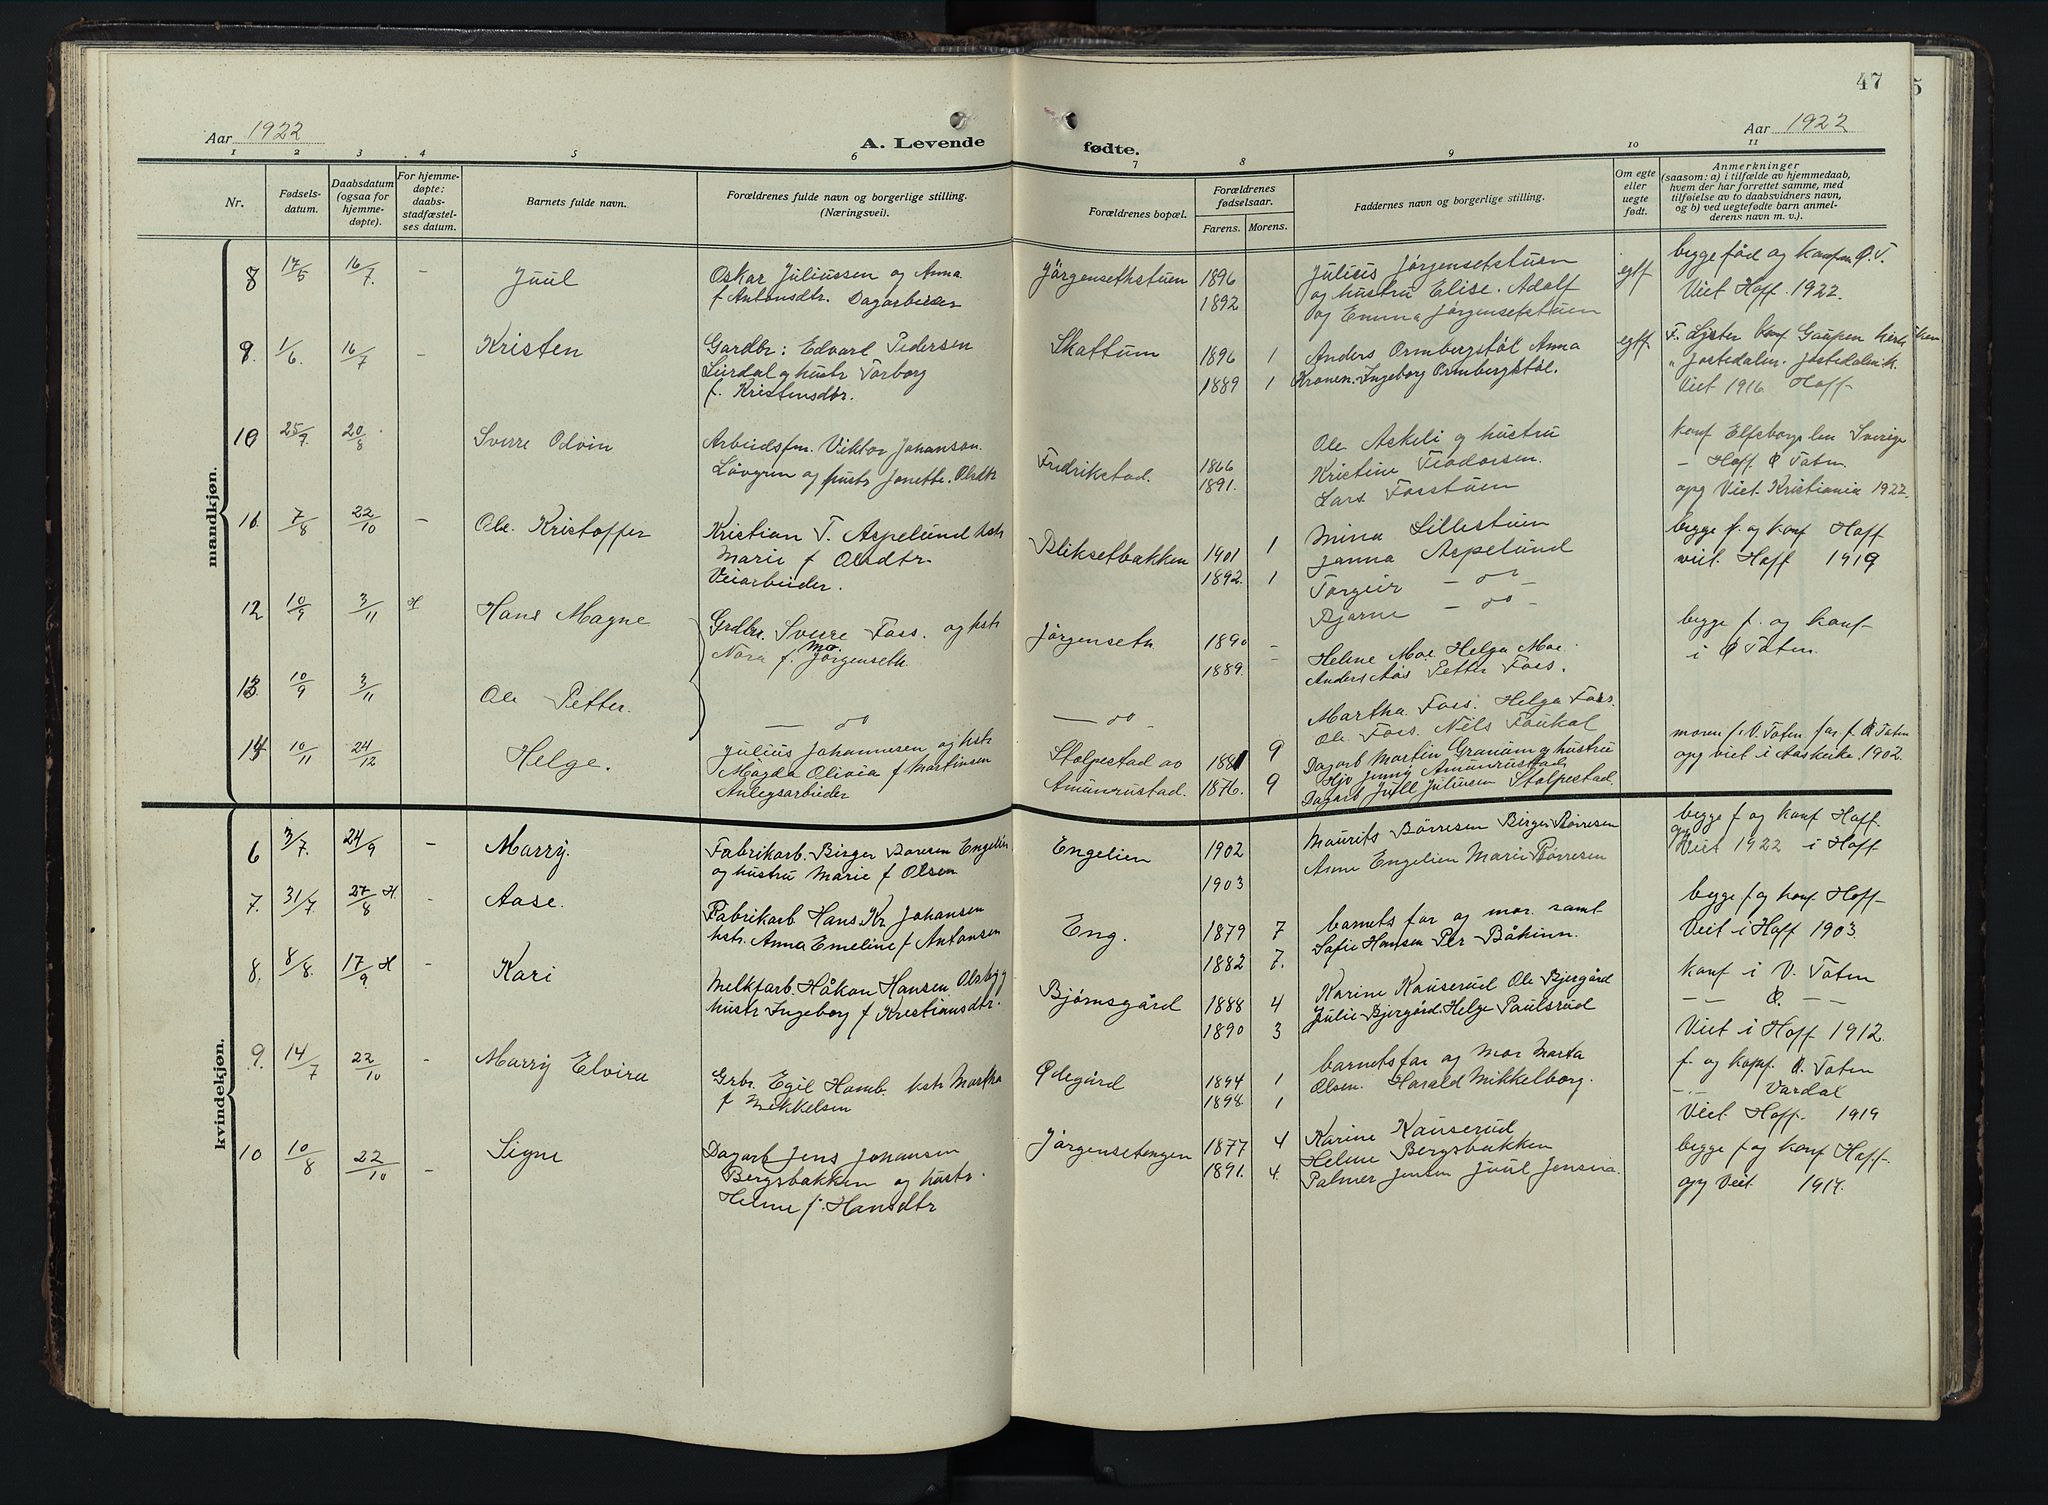 47
5
Aar 1922
A. Levende
fødte.
Aar 1922
1 2 3 4 5 6 7 8 9 10 11
Nr.
Fødsels-
datum.
Daabsdatum
(ogsaa for
hjemme-
døpte).
For hjemme-
døpte:
daabs-
stadfæstel-
ses datum.
Barnets fulde navn.
Forældrenes fulde navn og borgerlige stilling.
(Næringsvei).
Forældrenes bopæl.
Forældrenes
fødselsaar.
Farens. Morens.
Faddernes navn og borgerlige stilling.
Om egte
eller
uegte
født.
Anmerkninger
(saasom: a) i tilfælde av hjemmedaab,
hvem der har forrettet samme, med
tilføielse av to daabsvidners navn,
og b) ved uegtefødte barn anmel-
derens navn m. v.).
mandkjøn.
8 17/5 16/7. – Juul
Oskar Juliussen og Anna
f Antonsdtr. Dagarbeider
Jörgensethstuen 1896
1892
Julius Jørgensetstuen
og hustru Elise. Adolf
og Emma Jørgensetstuen
egtf
begge fød og konf Ø.T.
Viet Hoff. 1922.
9. 1/6. 16/7 – Kristen
Gardbr: Edvart Pedersen
Lirdal og hustr Torborg
f. Kristensdtr.
Skattum 1896 1
1889 1
Anders Ormbergstøl Anna
Kronen. Ingeborg Ormbergstøl.
egtf
F. Lyster konf Gaupen
" Jostedalen. Jostedalen k.
Viet 1916 Hoff
10 25/9. 20/8 Sverre Odvin
Arbeidsfm. Viktor Johanson
Lövgren og hustr Jonette. Olsdtr
Fredrikstad. 1866
1891.
Ole Askeli og hustru
Kristine Teodorsen.
Lars Fosstuen
konf Elfsborgs len Sverige
– Hoff Ø Toten.
opg Viet. Kristiania 1922.
11. 7/8 22/10 – Ole Kristoffer
Kristian T. Aspelund hstr
Marie f Olsdtr.
Veiarbeider.
Bliksetbakken 1901 1
1892. 1
Mina Lillestuen
Janna Aspelund
Torgeir – do –
Bjarne – do –
begge f. og konf Hoff
viet. Hoff 1919
12 10/9 3/11 H Hans Magne
Grdbr. Sverre Foss. og hstr
Nora f. Mo. Jörgenseth.
Jørgenseth 1890 –
1889. –
Helene Moe Helga Moe.
Anders Aas Petter Foss.
begge f. og konf
i Ø Toten.
13 10/9 3/11 Ole Petter.
– do – do –
Martha Foss. Helga Foss.
Ole Foss. Nils Foukal
14 10/11 24/12 Helge.
Julius Johannesen og hstr
Magda Olivia f Martinsen
Anlegsarbeider
Stolpestad av
Amunrustad. 1881 9
1876. 9
Dagarb Martin Granum og hustru
Jenny Amunrustad
Dagarb Juell Juliusen Stolpestad.
moren f. V. Toten far f. Ø Toten
opg viet i Aaskirke. 1902.
kvindekjøn.
6 3/7. 24/9 – Marry.
Fabrikarb. Birger Börresen Engelien
og hustru Marie f Olsen
Engelien 1902
1903
Maurits Børresen Birger Børresen
Anne Engelien Marie Børresen
begge f og konf Hoff.
opg Viet 1922 i Hoff
7. 31/7. 27/8 H. – Aase.
Fabrikarb Hans Kr Johansen
hstr. Anna Emeline f Antonsen
Eng. 1879 7
1882 7.
barnets far og mor. samt
Sofie Hansen Per Båkinn.
begge f og konf Hoff–
Viet i Hoff 1903.
8. 8/8. 17/9 H – Kari
Melkfarb. Håkon Hansen Olsbyg
hustr Ingeborg f Kristiansdtr.
Bjømsgård 1888 4
1890 3
Karine Kauserud Ole Bjergård
Julie Bjergård. Helge Paulsrud
konf i V. Toten
– – Ø. – –
Viet i Hoff 1912.
9. 14/7 22/10 – Marry Elvira
Grbr. Egil Hamb. hstr Martha
f Mikkelsen
Ødegård 1894 1
1898. 1
barnets far og Mor Marta
Olsen. Harald Mikkelborg.
f. og konf. Ø. Toten
– – Vardal
Viet. Hoff. 1919
10 10/8 22/10 – Signe
Dagarb Jens Johansen
Bergsbakken og hustr.
Helene f. Hansdtr
Jørgensetengen 1877 4
1891. 4.
Karine Kauserud
Helene Bergsbakken
Palmer Jensen Juul Jensen.
begge f og konf Hoff.
opg Viet 1917.